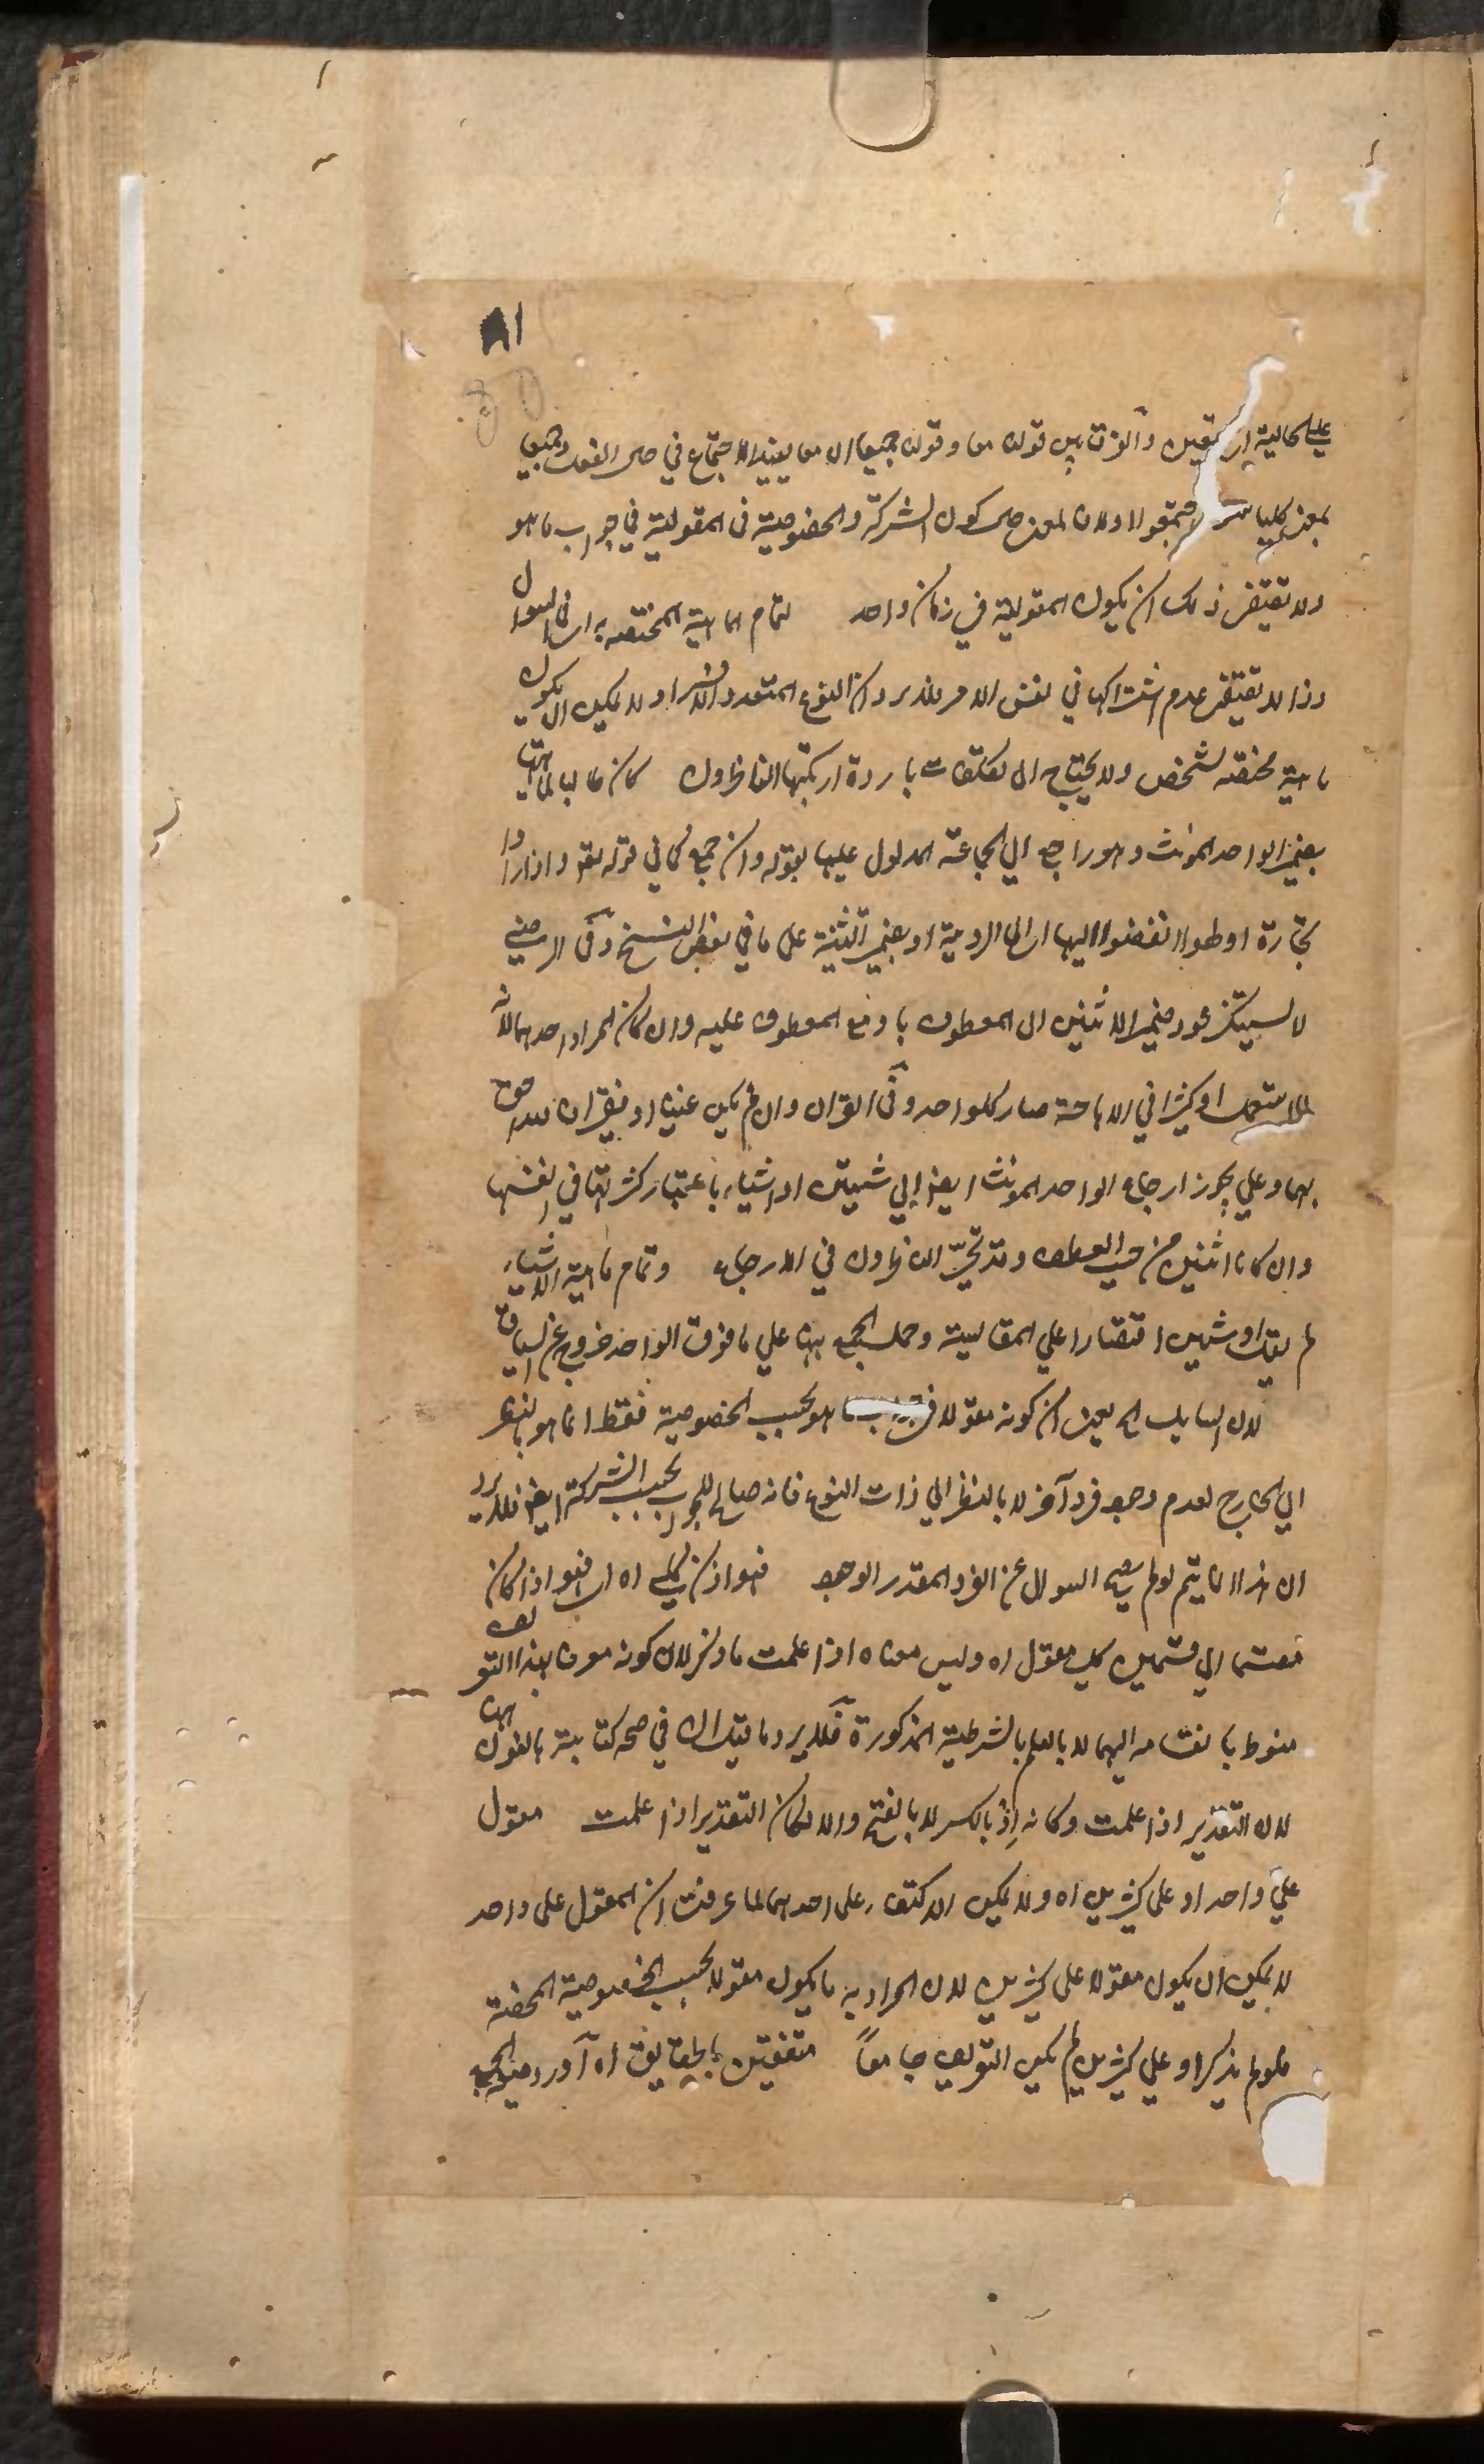 ٨١
على الحالية اى مجتمعين والفرق بين قولنا معا وقولنا جميعا ان معا يفيد الاجتماع في حال الفعل وجميعا
بمعنى كلنا سواء اجتمعوا اولا والمعنى حال كون الشركة والخصوصية فى المقولية في جواب ما هو
ولا يقتضى ذلك ان يكون المقولية في زمان واحد لتمام الماهية المختصة به اى فى السوال
وذا لا يقتضى عدم اشتراكها في نفس الامر فلا يرد ان النوع المتعدد الاشخاص لا يمكن ان يكون
ماهية مختصة لشخص ولا يحتاج الى تكلفات باردة ارتكبها الناظرون كان طالبا لماهيتها
بضمير الواحد المؤنث وهو راجع الي الجماعة المدلول عليها بقوله وان جمع كما في قوله تعالى واذا راوا
تجارة او لهوا انفضوا اليها اى الى الرؤية او بضمير التثنية على ما في بعض النسخ وفى الرضي
لا يستنكر عود ضمير الاثنين الى المعطوف باو مع المعطوف عليه وان كان المراد احدهما لانه
لما استعمل او كثيرا في الاباحة صار كالواو وفى القران وان لم يكن غنيا او فقيرا فالله اولى
بهما وعلى يجوز ارجاع الواحد المؤنث ايضا إلي شيئين او اشياء باعتبار كثرتها في انفسها
وان كانا اثنين من حيث العطف وقد تحيّر الناظرون في الارجاع وتمام ماهية الاشياء
لم يقل او شيئين اقتصارا علي المقايسة وحمل الجمع ههنا علي ما فوق الواحد خروج عن السياق
لان السايل اه يعنى ان كونه مقولا فى جواب ما هو بحسب الخصوصية فقط انما هو بالنظر
الي الخارج لعدم وجود فرد آخر لا بالنظر الي ذات النوع فانه صالح للجواب بحسب الشركة ايضا فلا يرد
ان هذا انما يتم لو لم يصح السوال عن الفرد المقدر الوجود فهو اذن كلي اه اى فهو اذا كان
منقسما الي قسمين كلي مقول اه وليس معناه اذا علمت ما ذكر لان كونه معرفا بهذا التعريف
منوط بانقسامه اليهما لا بالعلم بالشرطية المذكورة فلا يرد ما قيل ان في صحة كتابته بالنون ههنا
لان التقدير اذا علمت وكانه اِذْ بالكسر لا بالفتح والا لكان التقدير اذا علمت مقول
علي واحد او على كثيرين اه ولا يمكن الاكتفاء على احدهما لما عرفت ان المقول على واحد
لا يمكن ان يكون مقولا على كثيرين لان المراد به ما يكون مقولا بحسب الخصوصية المحضة
فلو لم يذكر او علي كثيرين لم يكن التعريف جامعاً متفقين بالحقايق اه آورد ضمير الجمع